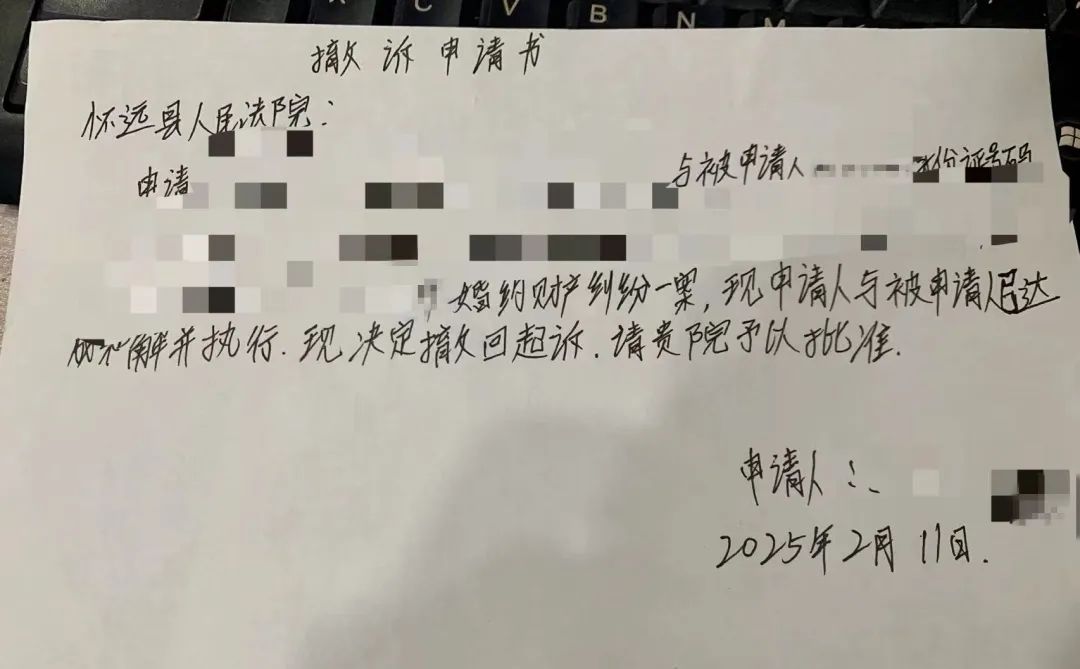 X C V B N M
撤诉申请书
怀远县人民法院：
申请 与被申请人 身份证号码
婚约财产纠纷一案，现申请人与被申请人已达
成和解并执行．现决定撤回起诉．请贵院予以批准．
申请人：
2025年2月11日．